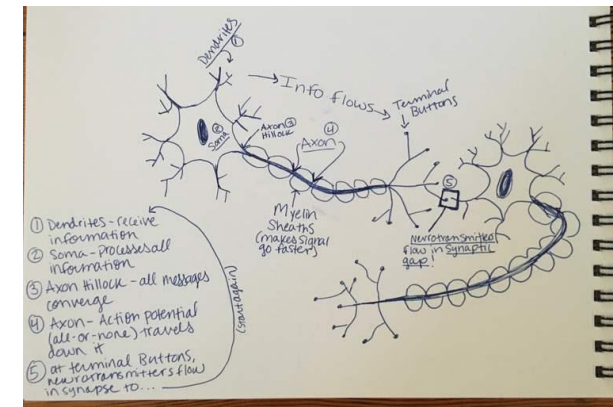 Dendrites
①
→ Info flows →
Terminal
Buttons
②
Soma
Axon ③
Hillock
④
Axon
Myelin
Sheaths
(makes signal
go faster)
⑤
Neurotransmitted
flow in Synaptic
gap!
① Dendrites - receive
information
② Soma - Processes all
information
③ Axon Hillock - all messages
converge
④ Axon - Action potential
(all-or-none) travels
down it
⑤ at terminal Buttons,
neurotransmitters flow
in synapse to...
(start again)